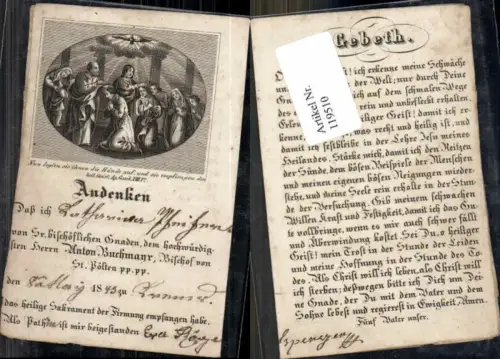 Nun legten sie ihnen die Hände auf und sie empfiengen den
heil. Geist.
Andenken
Daß ich Katharina
von Sr. bischöflichen Gnaden, dem hochwürdig-
sten Herrn Anton Buchmayr, Bischof von
St. Pölten pp. pp.
den 1843 zu
das heilige Sakrament der Firmung empfangen habe.
Als Pathe ist mir beigestanden
Gebeth.
ich erkenne meine Schwäche
der Welt; nur durch Deine
ich auf dem schmalen Wege
rein und unbefleckt erhalten,
Geist! damit ich er-
was recht und heilig ist, und
damit ich festbleibe in der Lehre Jesu meines
Heilandes. Stärke mich, damit ich den Reitzen
der Sünde, dem bösen Beispiele der Menschen
und meinen eigenen bösen Neigungen wieder-
stehe, und meine Seele rein erhalte in der Stun-
de der Versuchung. Gib meinem schwachen
Willen Kraft und Festigkeit, damit ich das Gu-
te vollbringe, wenn es mir auch schwer fällt
und Überwindung kostet. Sei Du, o heiliger
Geist! mein Trost in der Stunde der Leiden
und meine Hoffnung in der Stunde des To-
des. Als Christ will ich leben, als Christ will
ich sterben; deßwegen bitte ich Dich um Dei-
ne Gnade, der Du mit dem Vater und dem
Sohne lebst und regierest in Ewigkeit. Amen.
Fünf Vater unser.
Artikel Nr.
119510